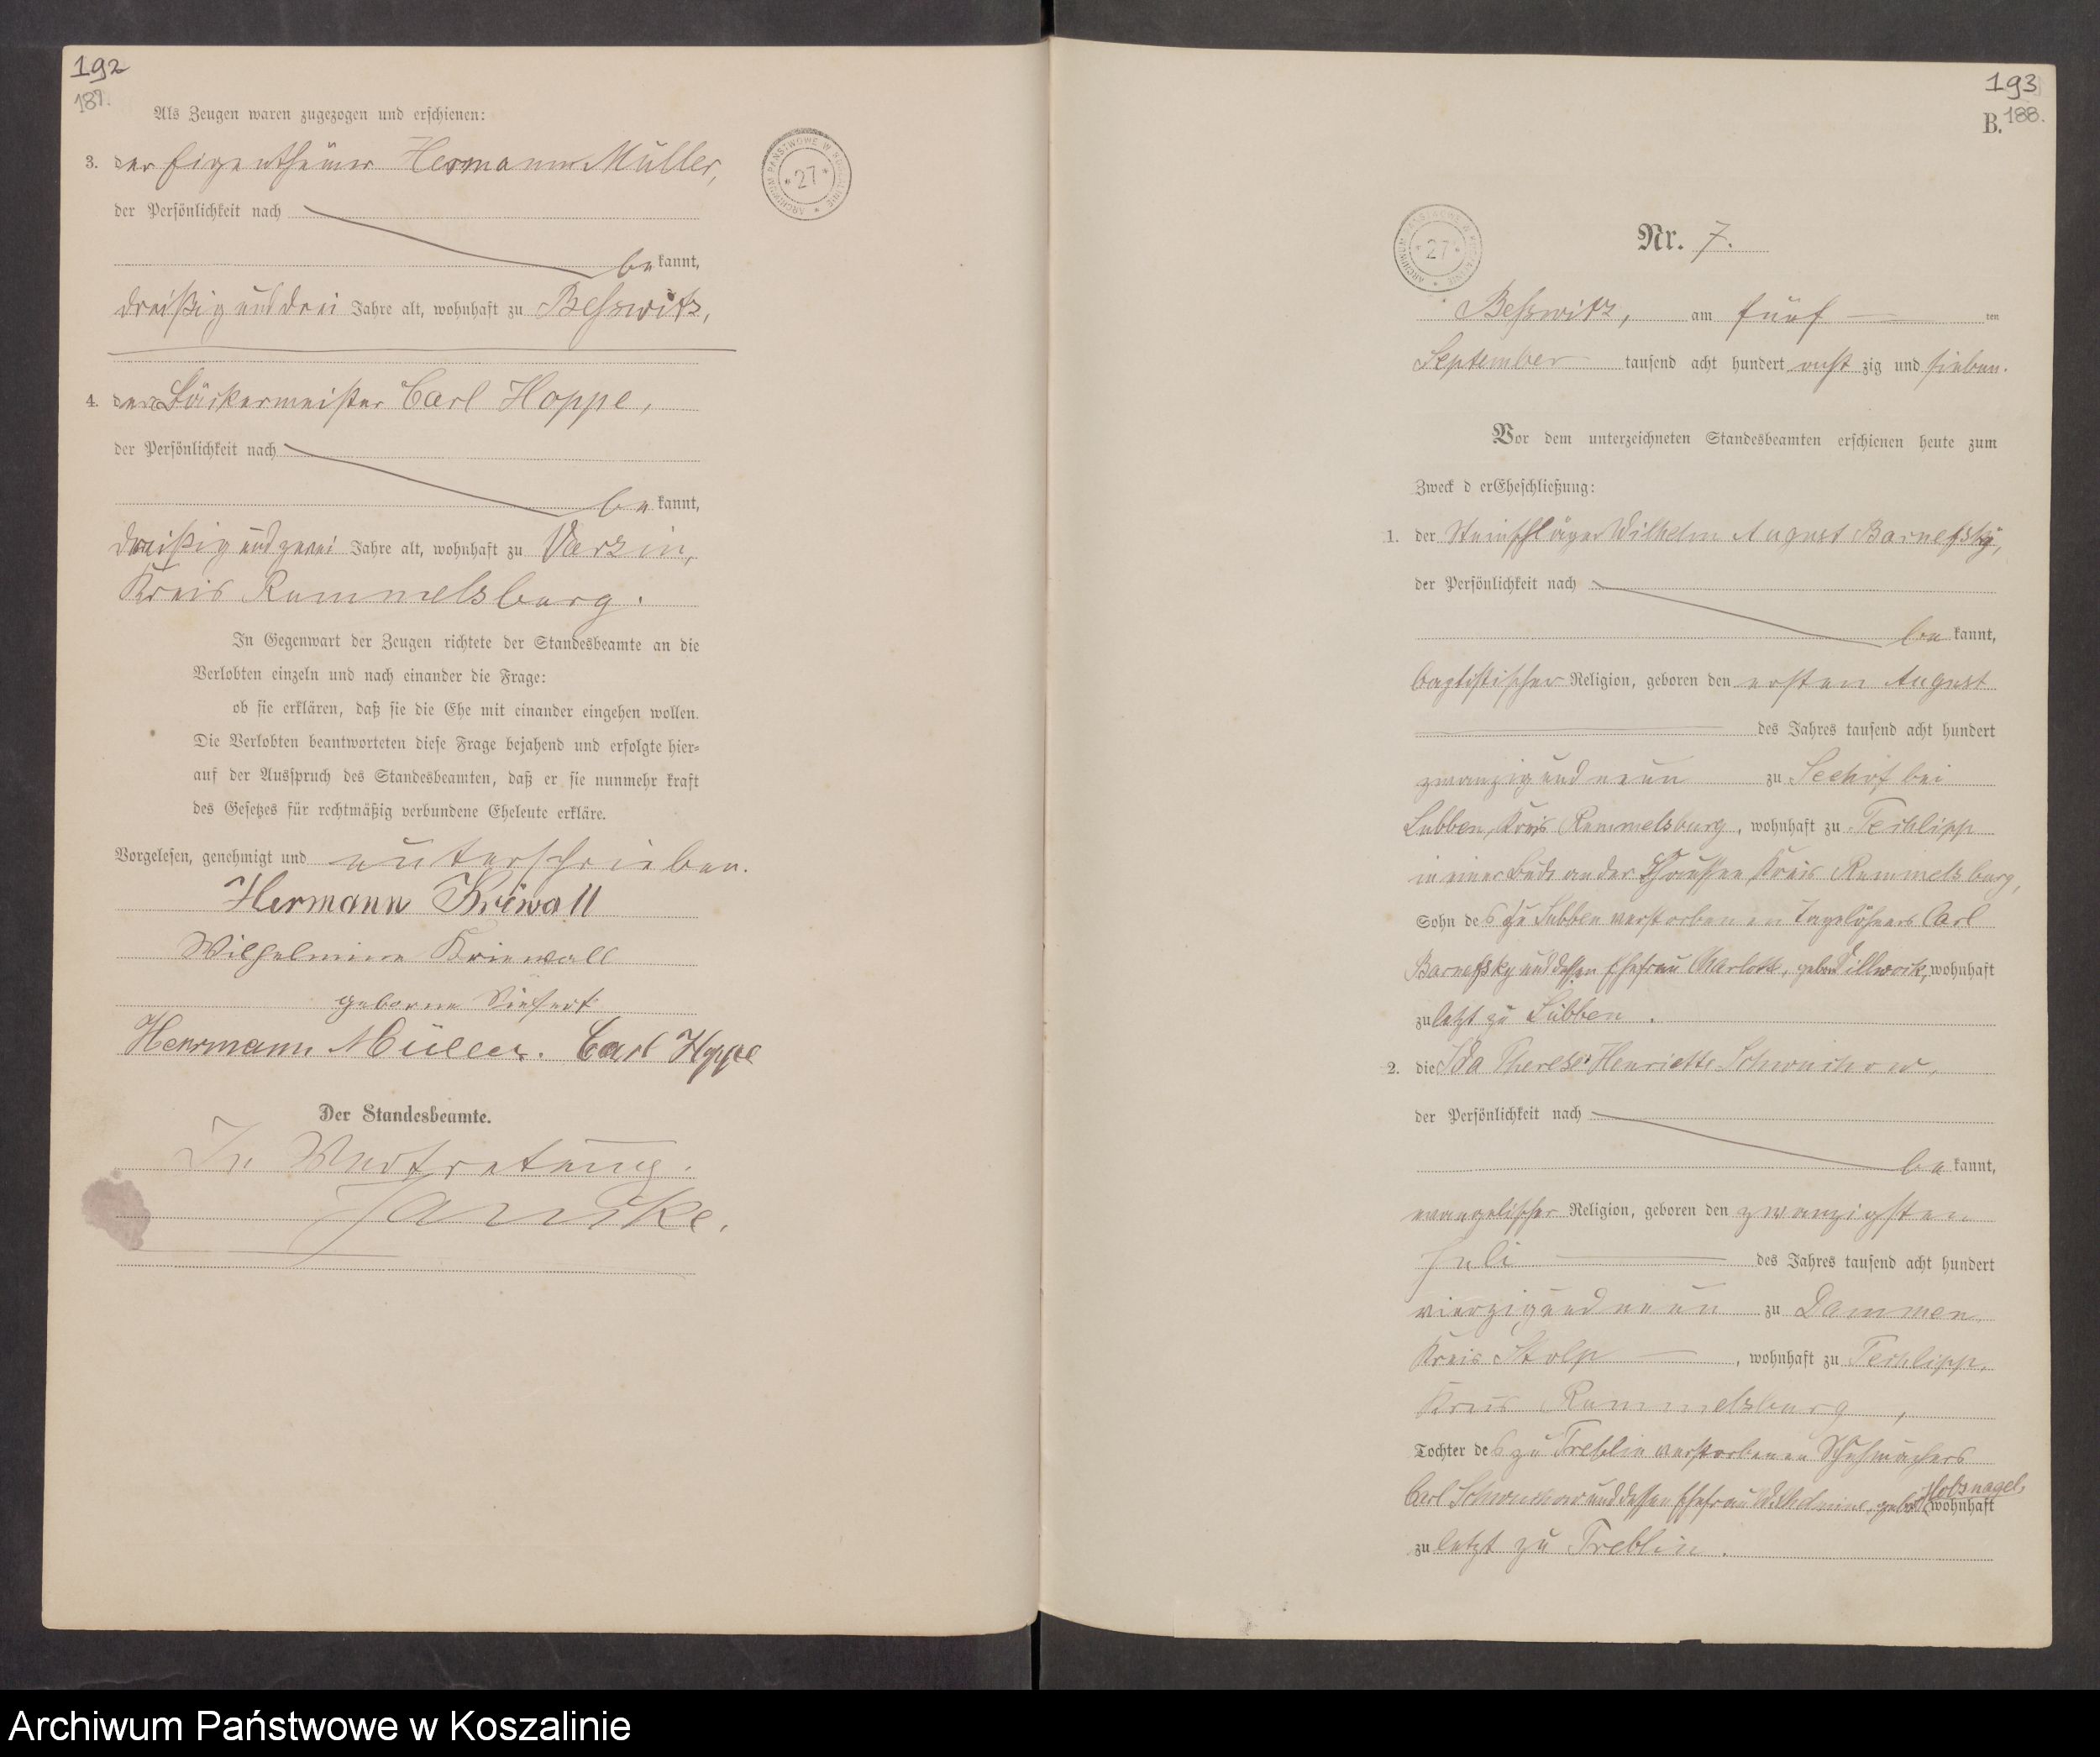 192
187.
Als Zeugen waren zugezogen und erschienen:
3. der Eigenthümer Hermann Müller,
der Persönlichkeit nach
be kannt,
dreißig und drei Jahre alt, wohnhaft zu Besswitz,
4. der Bäckermeister Carl Hoppe,
der Persönlichkeit nach
be kannt,
dreißig und zwei Jahre alt, wohnhaft zu Varzin,
Kreis Rummelsburg.
In Gegenwart der Zeugen richtete der Standesbeamte an die
Verlobten einzeln und nach einander die Frage:
ob sie erklären, daß sie die Ehe mit einander eingehen wollen.
Die Verlobten beantworteten diese Frage bejahend und erfolgte hier=
auf der Ausspruch des Standesbeamten, daß er sie nunmehr kraft
des Gesetzes für rechtmäßig verbundene Eheleute erkläre.
Vorgelesen, genehmigt und unterschrieben.
Hermann Kriewall
Wilhelmine Kriewall
geborne
Herrmann Müller. Carl Hoppe
Der Standesbeamte.
In Vertretung.
ARCHIWUM PAŃSTWOWE W KOSZALINIE
* 27 *
193
188.
B.
ARCHIWUM PAŃSTWOWE W KOSZALINIE
* 27 *
Nr. 7.
Besswitz, am fünf ten
September tausend acht hundert acht zig und sieben.
Vor dem unterzeichneten Standesbeamten erschienen heute zum
Zweck d er Eheschließung:
1. der Steinschläger Wilhelm August Barnefsky,
der Persönlichkeit nach
be kannt,
baptistischer Religion, geboren den ersten August
des Jahres tausend acht hundert
zwanzig und neun zu Seehof bei
Lubben, Kreis Rummelsburg, wohnhaft zu Techlipp
in einer Bude an der Chaussee, Kreis Rummelsburg,
Sohn des zu Lubben verstorbenen Tagelöhners Carl
Barnefsky und dessen Ehefrau Charlotte, geb. wohnhaft
zuletzt zu Lubben.
2. die Ida Therese Henriette Schwuchow,
der Persönlichkeit nach
be kannt,
evangelischer Religion, geboren den zwanzigsten
Juli des Jahres tausend acht hundert
vierzig und neun zu Dammen
Kreis Stolp, wohnhaft zu Techlipp,
Kreis Rummelsburg,
Tochter des zu Treblin verstorbenen Schuhmachers
Carl Schwuchow und dessen Ehefrau Wilhelmine, geb. wohnhaft
zu letzt zu Treblin.
Archiwum Państwowe w Koszalinie